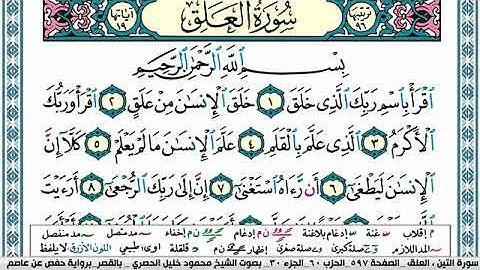 ترتيبها ٩٦ سُورَةُ العَلَقِ آياتها ١٩
بِسْمِ اللَّهِ الرَّحْمَٰنِ الرَّحِيمِ
اقْرَأْ بِاسْمِ رَبِّكَ الَّذِي خَلَقَ ١ خَلَقَ الْإِنسَٰنَ مِنْ عَلَقٍ ٢ اقْرَأْ وَرَبُّكَ
الْأَكْرَمُ ٣ الَّذِي عَلَّمَ بِالْقَلَمِ ٤ عَلَّمَ الْإِنسَٰنَ مَا لَمْ يَعْلَمْ ٥ كَلَّا إِنَّ
الْإِنسَٰنَ لَيَطْغَىٰ ٦ أَن رَّءَاهُ اسْتَغْنَىٰ ٧ إِنَّ إِلَىٰ رَبِّكَ الرُّجْعَىٰ ٨ أَرَءَيْتَ
م إقلاب غنة ن م إدغام بلاغنة ن م إدغام ن م إخفاء مد متصل مد منفصل
مد اللازم صلة كبرى صلة صغرى إظهار ن م قلقلة اوى طبيعي اللون الأزرق لا يلفظ
سورة التين ، العلق . الصفحة ٥٩٧ الحزب ٦٠ . الجزء ٣٠ . بصوت الشيخ محمود خليل الحصري . بالقصر برواية حفص عن عاصم